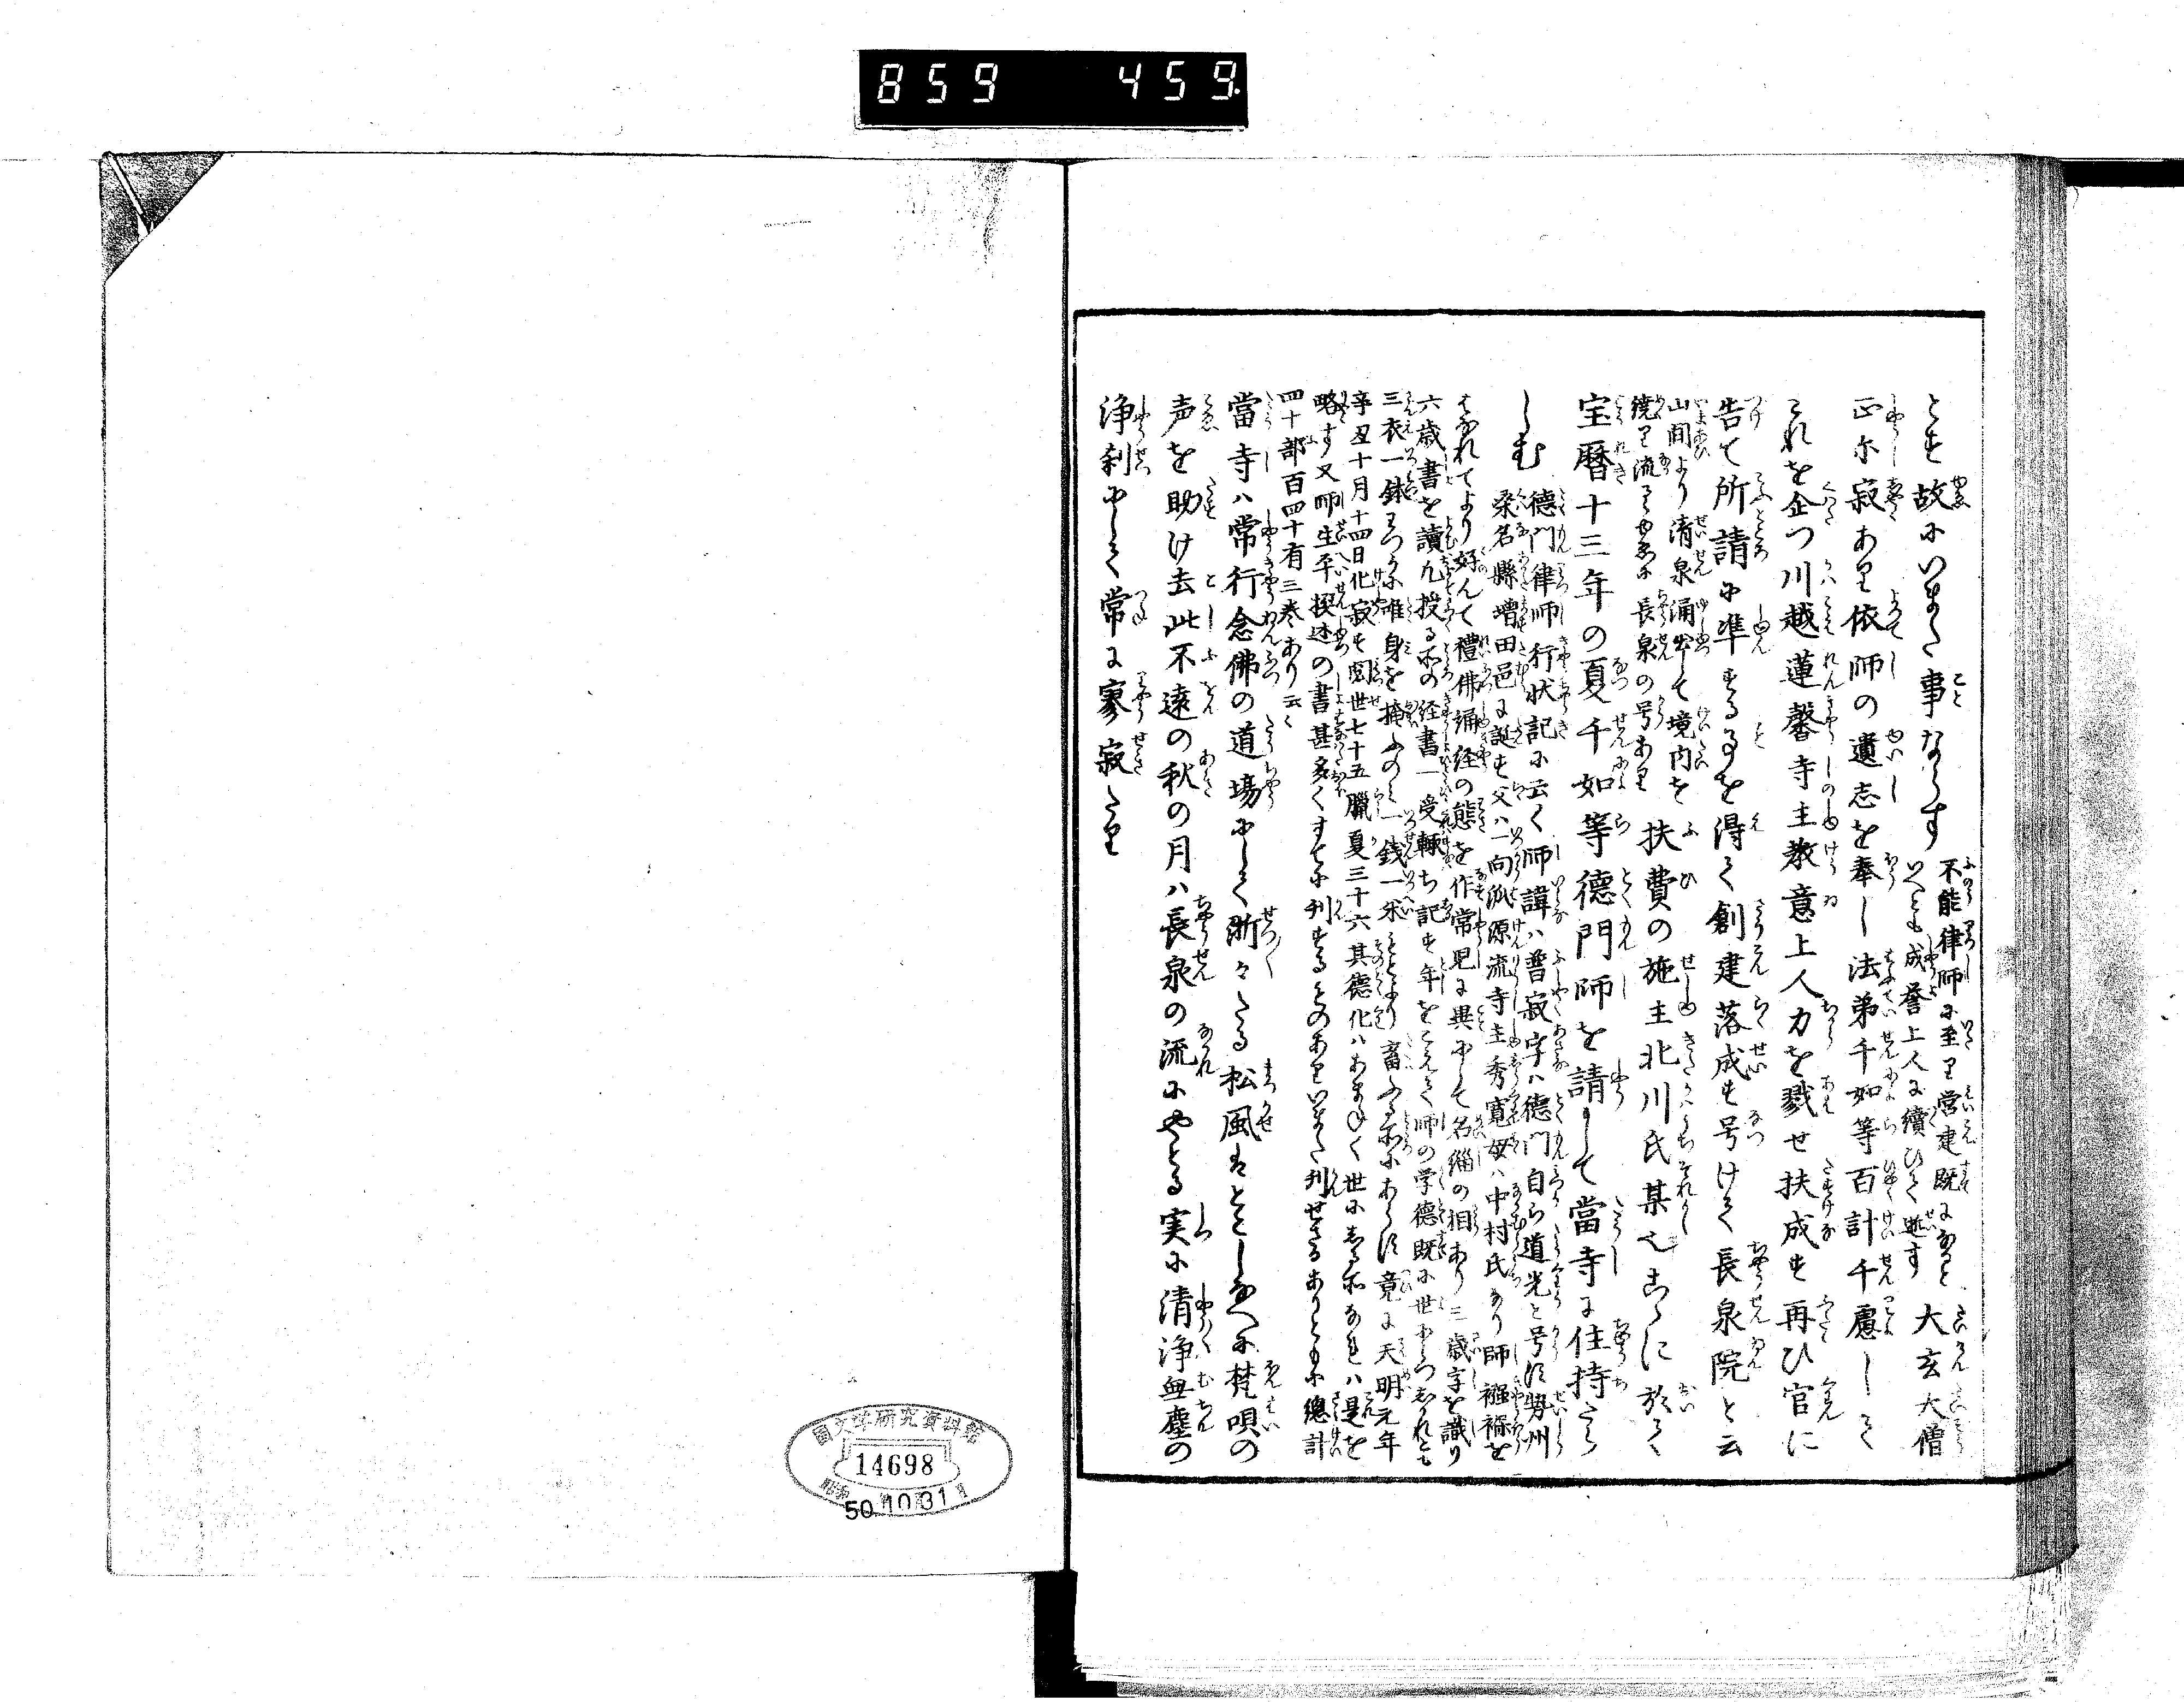 859 459
とす故にいまた事ならす
不能律師に至り営建既になると
いへとも成誉上人に續ひて逝す
大玄大僧
正に寂あり依師の遺志を奉し法弟千如等百計千慮して
これを企つ川越蓮馨寺主教意上人力を戮せ扶成す再ひ官に
告て所請に準する事を得て創建落成す号けて長泉院と云
山間より清泉涌出して境内を
繞り流るゆゑに長泉の号あり
扶費の施主北川氏某也こゝに於て
宝暦十三年の夏千如等德門師を請して當寺に住持たら
しむ
德門律師行状記に云く師諱ハ普寂字ハ德門自ら道光と号す勢州
桑名縣增田邑に誕す父ハ一向派源流寺主秀寛母ハ中村氏なり師襁褓を
はなれてより好んて禮佛誦経の態を作常児に異にして名緇の相あり三歳字を識り
六歳書を讀凡投る所の経書一受輙ち記す年をこえて師の学德既に世に
三衣一鉢わつかに唯身を掩ふのミ一銭一米
畜ふる所にあらす竟に天明元年
辛丑十月十四日化寂す閲世七十五臘夏三十六其德化ハあまねく世にしる所なれハ是を
略す又師生平撰述の書甚多くすてに刊するものありいまた刊せさるありともに總計
四十部百四十有三巻あり云々
當寺ハ常行念佛の道場にして浙々たる松風ハとこしなへに梵唄の
声を助け去此不遠の秋の月ハ長泉の流にやとる実に清浄無塵の
浄刹にして常に寥寂たり
國文学研究資料館
14698
昭和
50.10.31